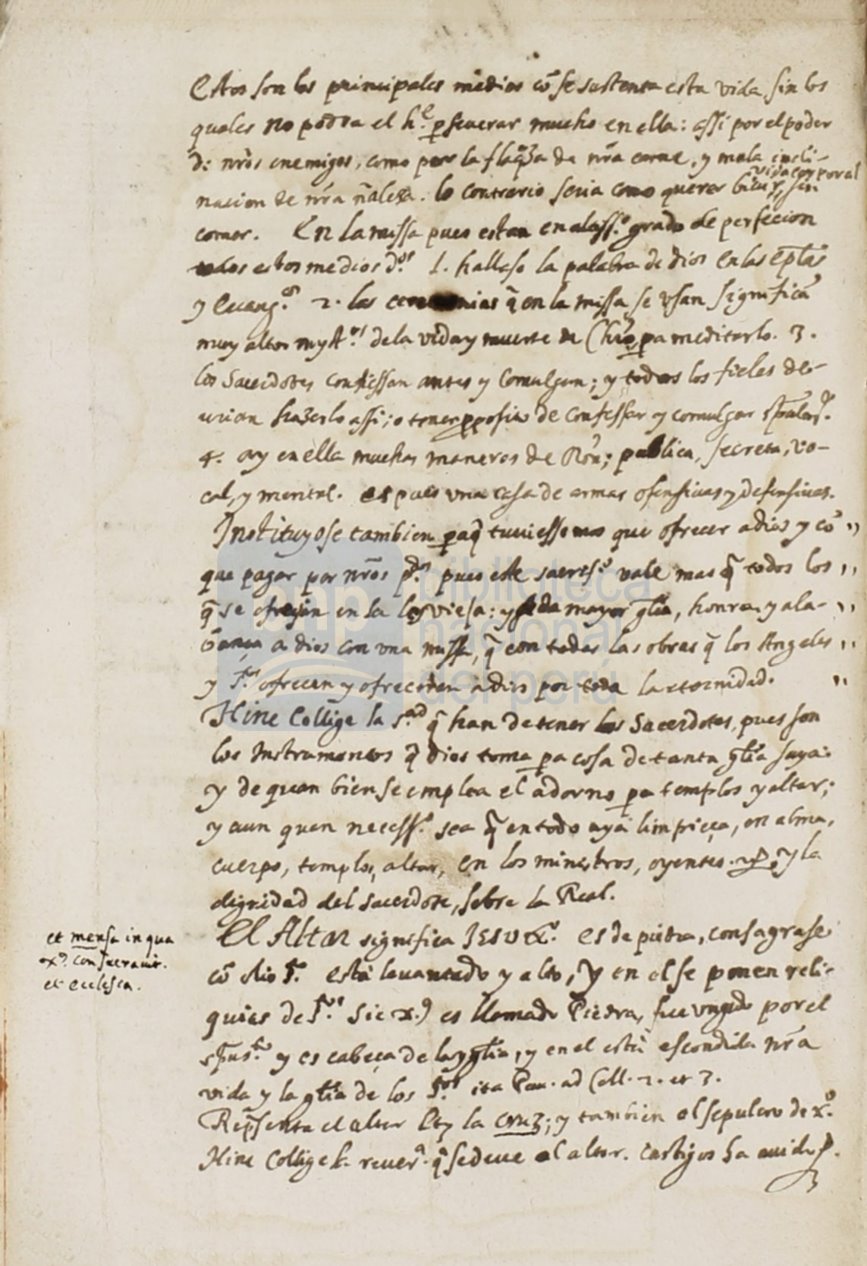 Estos son los principales medios cō se sustenta esta vida, sin los
quales no podra el hē. perseuerar mucho en ella: assi por el poder
de nr̄os enemigos, como por la flaq̄za de nr̄a carne, y mala incli-
nacion de nr̄a nāleza. lo contrario seria como querer biuir, sin
vida corporal
comer. En la missa pues estan en alass.º grado de perfecion
todos estos medios d.ºˢ 1. hallase la palabra de Dios en las ep̄las
y Euang.ºˢ 2. las ceremonias q̄ en la missa se vsan significā
muy altos myst.ºˢ de la vida y muerte de Chr̄o pa meditarlo. 3.
los Sacerdotes confiessan antes y comulgan; y todos los fieles de-
urian hazerlo assi; o tener pposito de confessar y comulgar
4. ay en ella muchas maneras de Rōn; publica, secreta, vo-
cal, y mental. es pues vna casa de armas ofensiuas y defensiuas.
Instituyose tambien paq̄ tuuiessemos que ofrecer a dios y cō ,,
que pagar por nr̄os p.ºˢ pues este sacrif.º vale mas q̄ todos los ,,
q̄ se ofrecian en la ley vieja: y se da mayor gl̄ia, honra, y ala- ,,
bança a dios con vna missa, q̄ con todas las obras q̄ los Angeles ,,
y S.ᵗᵒˢ ofrecen y ofreceran a dios por toda la eternidad. ,,
Hinc Collige la s.ᵃᵈ q̄ han de tener los Sacerdotes, pues son
los Instrumentos q̄ Dios toma pa cosa de tanta gl̄ia suya:
y de quan bien se emplea el adorno pa templos y altar;
y aun quan necess.º sea q̄ en todo aya limpieça, en alma,
cuerpo, templo, altar, en los ministros, oyentes. y la
dignidad del sacerdote, sobre la Real.
El Altar significa IESV X.º es de piedra, consagrase
cō olio S.º está leuantado y alto, y en el se ponen reli-
quias de S.ᵗᵒˢ Sic x.ˢ es llamado Piedra, fue vngido por el
sp̄us.ᵗᵒ y es cabeça de la ygl̄ia, y en el está escondida nr̄a
vida y la gl̄ia de los S.ᵗᵒˢ ita Pau. ad Coll. 2. et 3.
Rep̄senta el altar la cruz; y tambien el sepulcro de x.º
Hinc Collige la reuer.ª q̄ se deue al altar. Castigos ha auido
et mensa in qua
x.ˢ consecrauit.
et ecclesia.
biblioteca
nacional
del perú